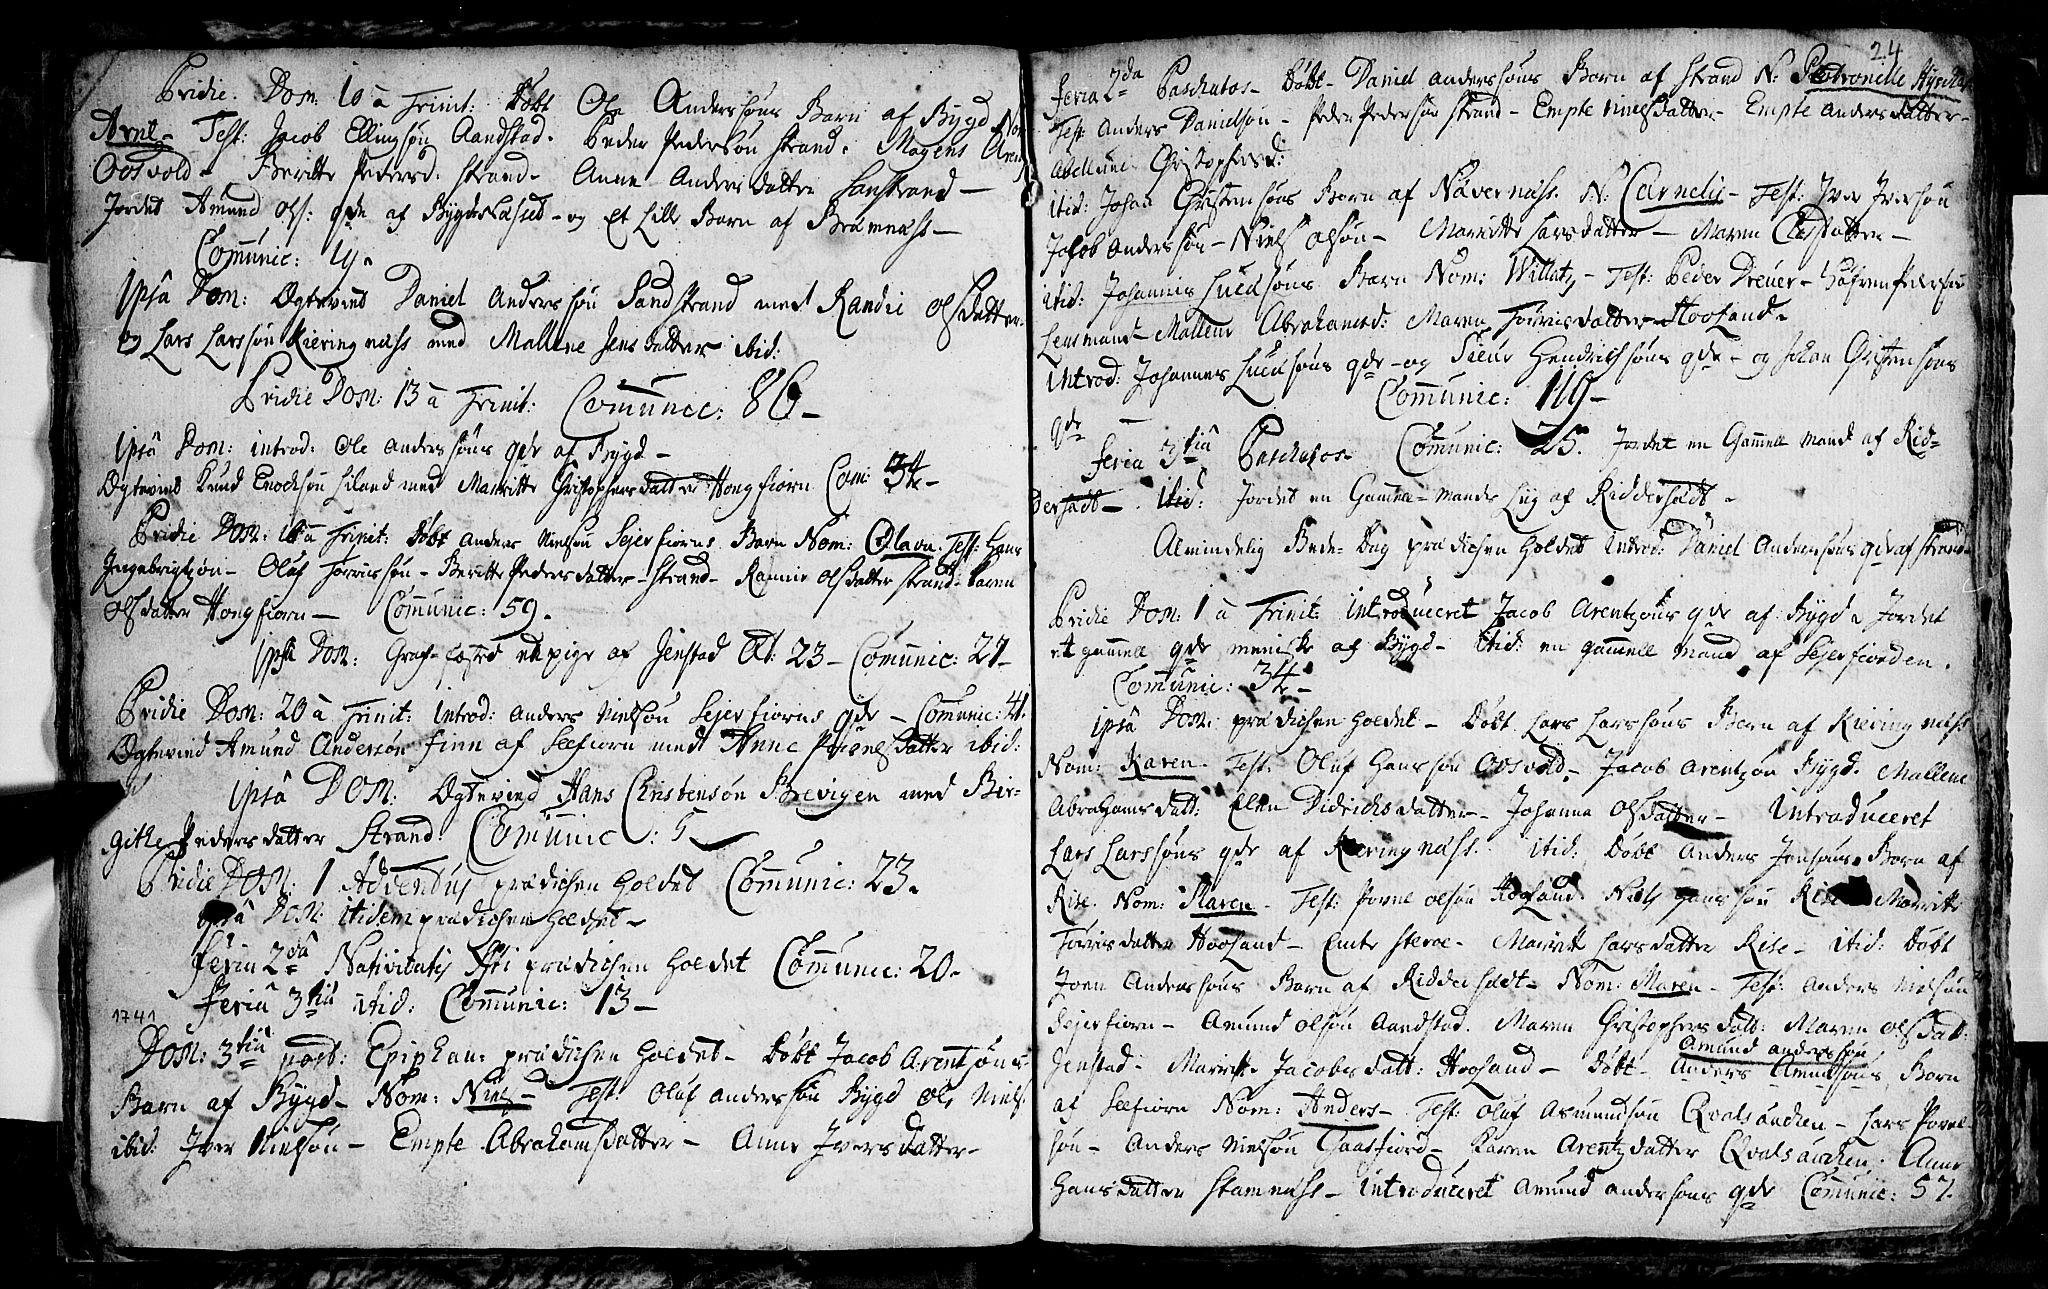 Pridie. Dom: 10 à Trinit: Døbt Ole Anderssøns Barn af Bygd Nom
Arnt – Test: Jacob Ellingsøn Aandstad. Peder Pedersøn Strand. Mogens
Oosvold – Beritte Pedersd. Strand – Anne Andersdatter Sanstrand –
Jordet Amund Ols: qde af Bygd – og et Lille Barn af Bremnæss –
Communic: 19.
Ipsâ Dom: Ægteviet Daniel Anderssøn Sandstrand med Randie Olsdatter
og Lars Larssøn Kieringnæss med Mallene Jensdatter ibid:
Pridie Dom: 13 à Trinit: Communic: 86 –
Ipsâ Dom: introd: Ole Anderssøns qde af Bygd –
Ægteviet Knud Enochsøn Siland med Marritte Christophersdatter Hongfiorn Com: 34 –
Pridie Dom: à Trinit: Døbt Anders Nielsøn Sejerfiorns Barn Nom: Olava. Test: Hans
Ingebrigtzøn – Oluf Torrissøn – Beritte Pedersdatter – Strand – Rannie Olsdatter Strand – Karen
Olsdatter Hongfiorn – Communic: 59.
Ipsâ Dom: Graf-fæsted en pige af Jenstad Æt: 23 – Communic: 27 –
Pridie Dom: 20 à Trinit: Introd: Anders Nielsøn Sejerfiorns qde – Communic: 41.
Ægteviet Amund Andersøn Finn af Seefiorn med Anne Povelsdatter ibid:
Ipsâ Dom: Ægteviet Hans Christensøn Brevigen med Bir-
githe Pedersdatter Strand. Communic: 5 –
Pridie Dom: 1 Adventus prædichen holdet Communic: 23.
Ipsâ Dom: itidem prædichen holdet –
Feria 2da Nativitatis Xsti prædichen holdet Communic: 20 –
Feria 3tia itid: Communic: 13 –
1741
Dom: 3tia post: Epiphan: prædichen holdet – Døbt Jacob Arentsøns
Barn af Bygd – Nom: Niels – Test: Oluf Anderssøn Bygd Ole Niels:
ibid: Iver Nielsøn – Empte Abrahamsdatter – Anne Iversdatter –
24
Feria 2da Paschatos – Døbt – Daniel Anderssøns Barn af Strand N: Petronelle
Test: Anders Danielsøn – Peder Pedersøn Strand – Empte Nielsdatter – Empte Andersdatter –
Abellune Christophersd:
itid: Johan Christensøns Barn af Navernæss. N: Carnelis – Test: Iver Iversøn
Jacob Anderssøn – Niels Olsøn – Marritte Larsdatter – Maren
itid: Johannis Lucassøns Barn Nom: Willatz – Test: Peder Dreuer – Pedersøn
Lensmand – Mallene Abrahamsd: Maren Torrisdatter – Hoosand –
Introd: Johannes Lucassøns qde – og Siever Hendrichsøns qde – og Johan Christensøns
Communic: 119 –
qde –
Feria 3tia Paschatos – Communic: 25. Jordet en Gammel Mand af Rid-
dershadt – . Itid: Jordet en Gammel – mands Liig af Riddershadt –
Almindelig Bede-Dag prædichen holdet Introd: Daniel Anderssøns qde af Strand –
Pridie Dom: 1 à Trinit: Introduceret Jacob Arentzøns qde af Bygd – Jordet
et gammelt qde meniske af Bygd – Itid: en gammell mand af Sejerfiorden.
Communic: 34 –
Ipsâ Dom: prædichen holdet – Døbt Lars Larssøns Barn af Kieringnæss
Nom: Karen – Test: Oluf Hanssøn Oosvold – Jacob Arentzøn Bygd. Mallene
Abrahamsdatt: Elen Didrichsdatter – Johanna Olsdatter – Introduceret
Lars Larssøns qde af Kieringnæss. Itid: Døbt Anders Jonsøns Barn af
Rise. Nom: Karen – Test: Povel Olsøn Hogsand. Niels Hanssøn Rise Marritte
Torrisdatter Hoosand – Emte Steroe – Marritt Larsdatter Rise – Itid: Døbt
Joen Anderssøns Barn af Riddershadt – Nom: Maren – Test: Anders Nielsøn
Sejerfiorn – Amund Olsøn Aandstad. Maren Christophersdatt: Maren Olsdatt:
Jenstad – Marritte Jacobsdatt: Hoosand – Døbt – Anders Amundsøns Barn
Amund Anderssøn
af Seefiorn Nom: Anders – Test: Oluf Asmundsøn Qvalsauchen – Lars Povel-
søn – Anders Nielsøn Gaasfiord – Karen Arentzdatter Qvalsauchen. Anne
Hansdatter Stamnæss – Introduceret Amund Anderssøns qde Communic: 57.